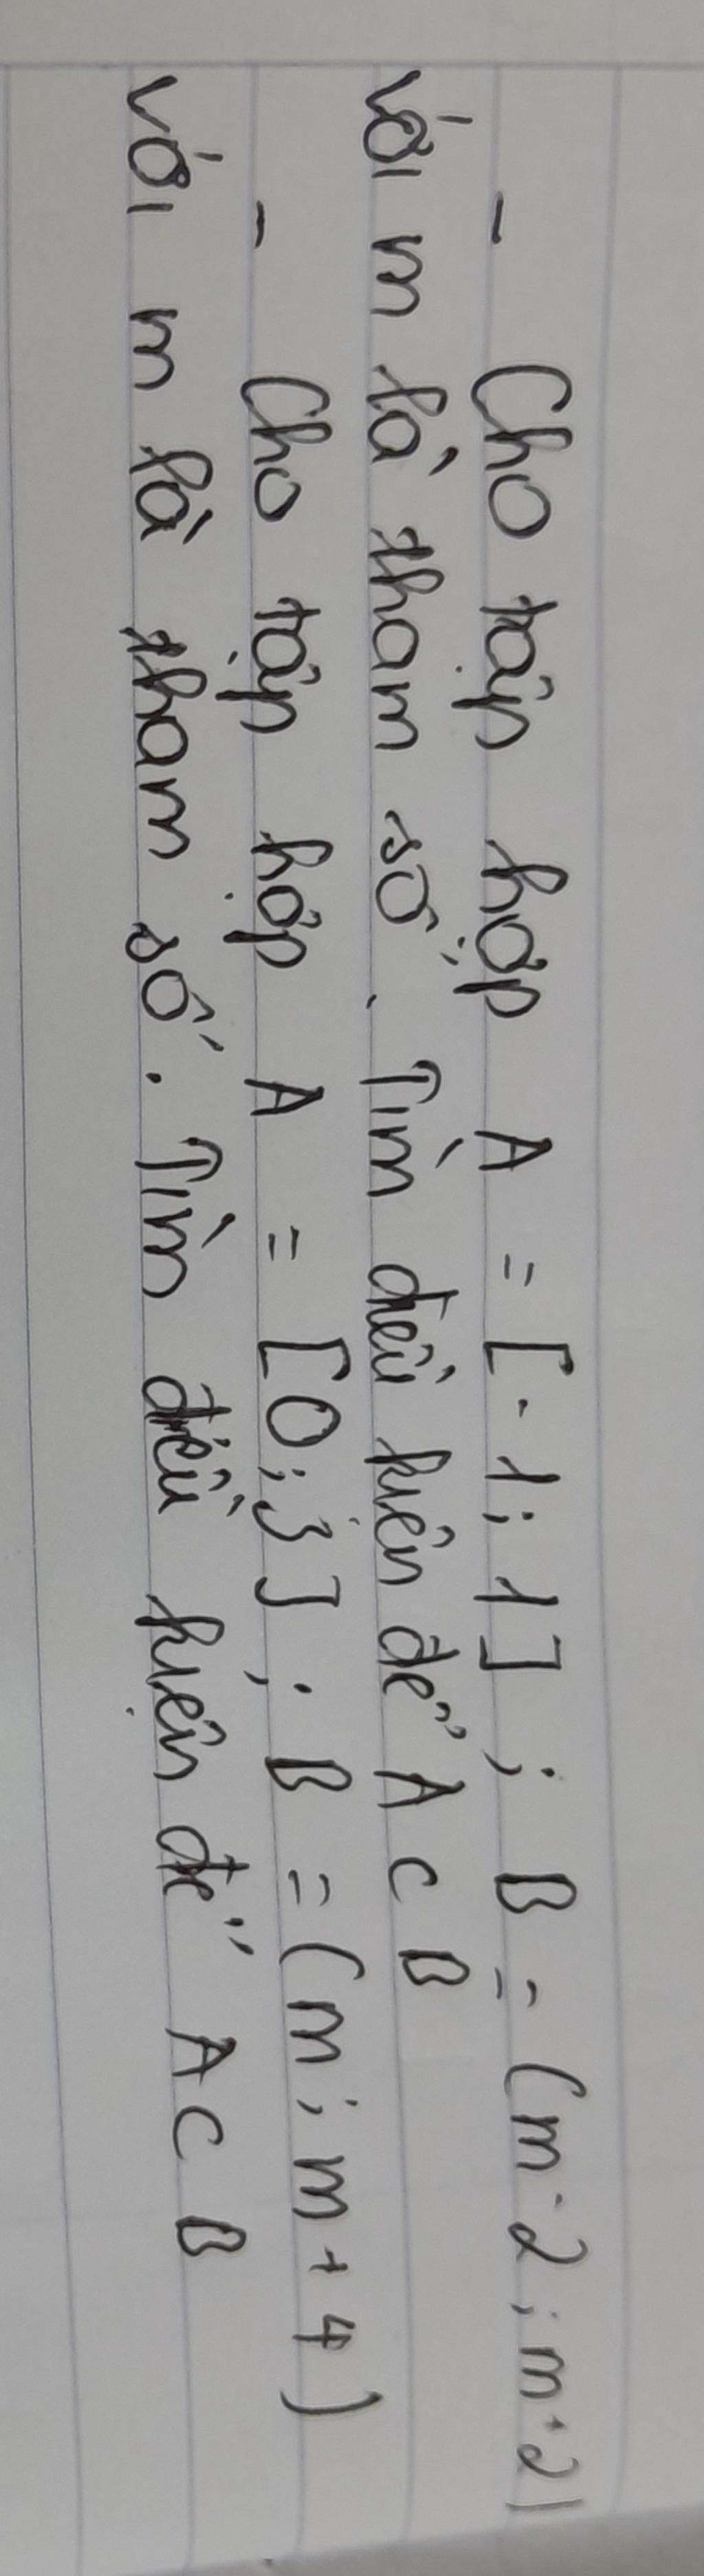 - Cho tập hợp A = [-1; 1]; B = (m-2; m+2)
với m là tham số. Tìm điều kiện để A ⊂ B
- Cho tập hợp A = [0; 3]; B = (m; m+4)
với m là tham số. Tìm điều kiện để A ⊂ B